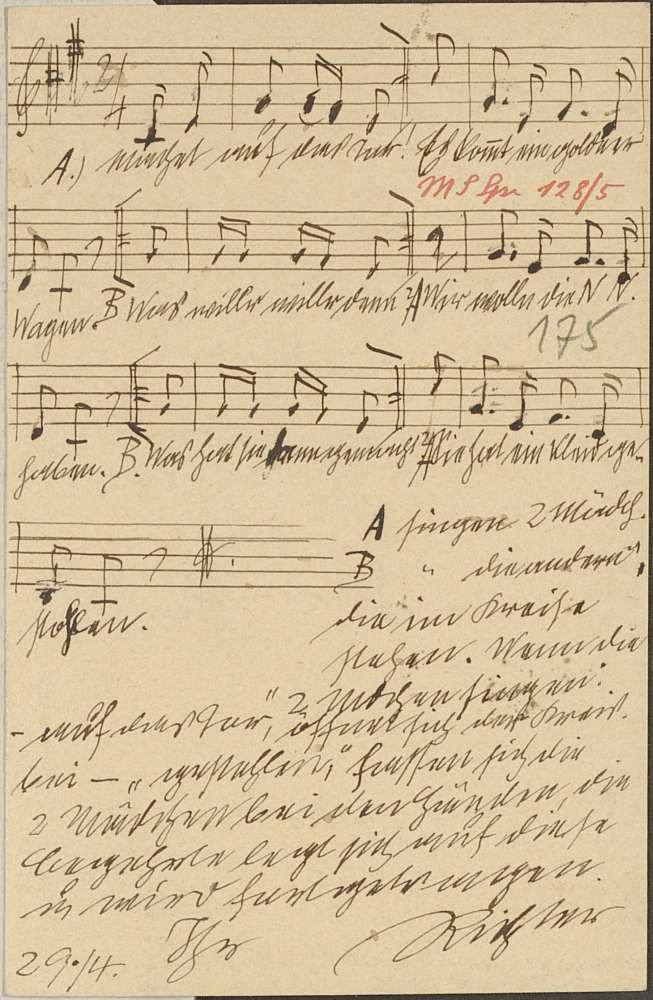 2/4
A.) machet auf das Tor! Es kommt ein goldner
MS Gr 128/5
Wagen. B Was willr willr denn? A Wir wolln die N N.
175
haben. B. Was hat sie denn gemacht? A Sie hat ein Kleid ge-
A singen 2 Mädch.
B " die andern,
stohlen.
die im Kreise
stehen. Wenn die
- auf das Tor", 2 Mädchen singen:
öffnet sich der Kreis.
bei — "gestohlen", fassen sich die
2 Mädchen bei den Händen, die
begehrte legt sich auf diese
u wird fortgetragen.
29./4. Ihr Richter